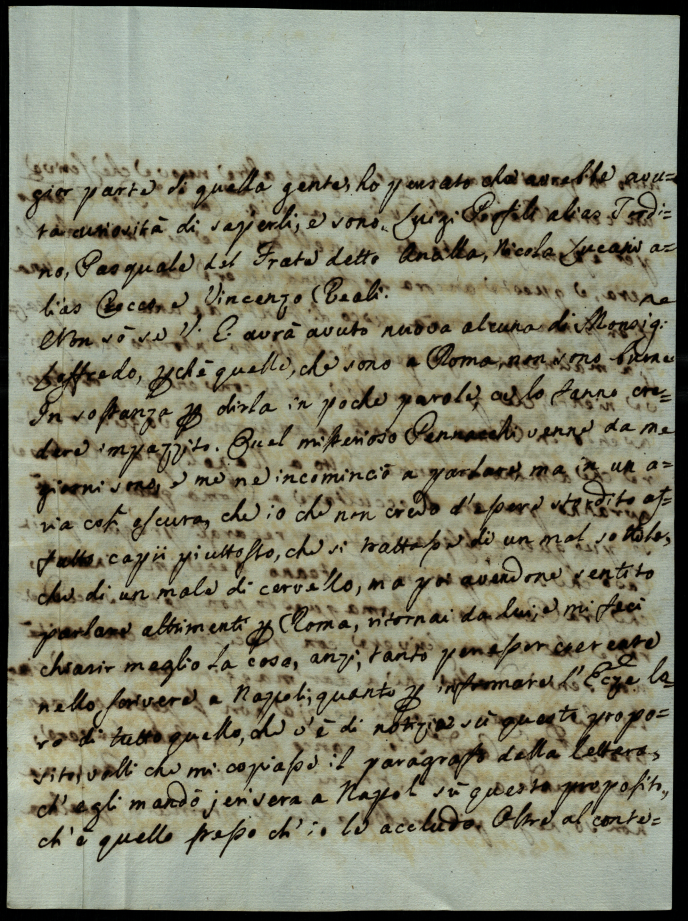 gior parte di quella gente, ho pensato che avrebbe avu=
ta curiosità di saperli, e sono. Luigi Porfili alias Tordi=
no, Pasquale del Frate detto Anilla, Nicola Lucani a=
lias Cocco, e Vincenzo Reali.
Non sò se V. E. avrà avuto nuova alcuna di Monsig.
re
Loffredo, p chè quelle, che sono a Roma, non sono buone
In sostanza p dirla in poche parole, ce lo fanno cre=
dere impazzito. Quel misterioso Pennacchi venne da me
giorni sono, e me ne incominciò a parlare, ma in un a=
ria così oscura, che io che non credo d'essere stordito af=
fatto capii piuttosto, che si trattasse di un mal sottile,
che di un male di cervello, ma poi avendone sentito
parlare altrimenti p Roma, ritornai da lui, e mi feci
chiarir meglio la cosa, anzi, tanto per
nello scrivere a Napoli, quanto p informare l'Ecze lo=
ro di tutto quello, che v'è di notizie sù questo propo=
sito, volli che mi copiasse il paragrafo della lettera,
ch'egli mandò jerisera a Napoli sù questo proposito,
ch'è quello stesso ch'io le accludo. Oltre al conte=